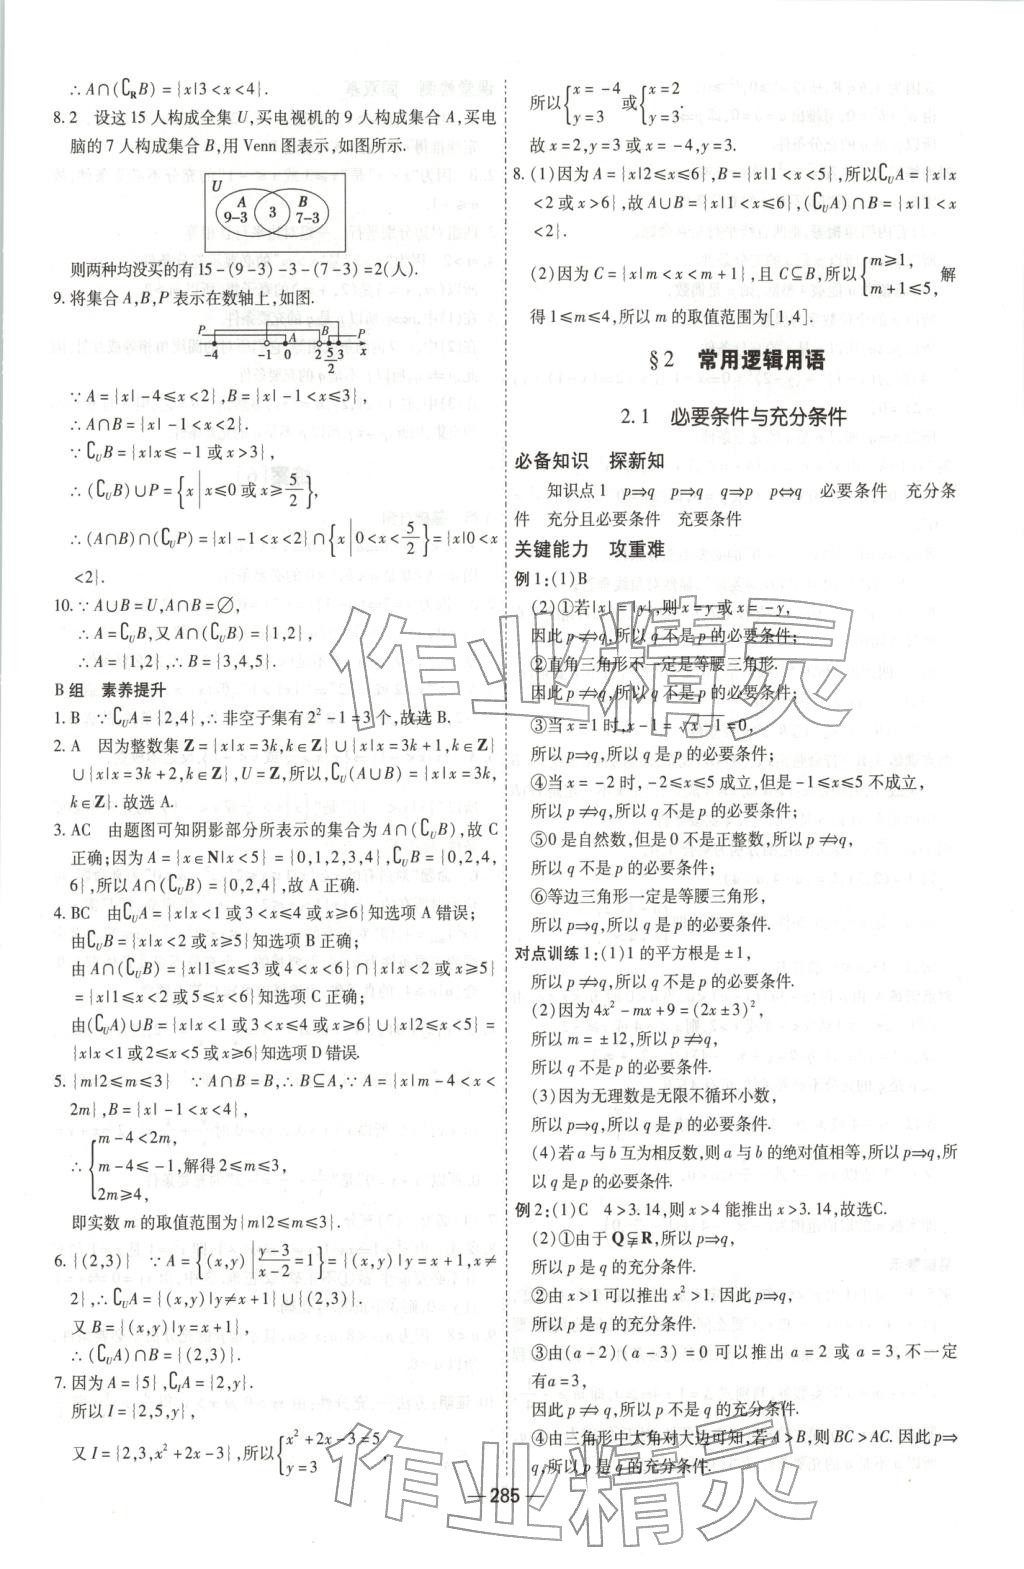 ∴A∩(∁RB)={x|3<x<4}.
8.2 设这15人构成全集U,买电视机的9人构成集合A,买电
脑的7人构成集合B,用Venn图表示,如图所示.
U
A B
9-3 3 7-3
则两种均没买的有15-(9-3)-3-(7-3)=2(人).
9.将集合A,B,P表示在数轴上,如图.
P A B P
-4 -1 0 2 5/2 3 x
∵A={x|-4≤x<2},B={x|-1<x≤3},
∴A∩B={x|-1<x<2}.
∵∁UB={x|x≤-1或x>3},
∴(∁UB)∪P={x|x≤0或x≥5/2},
∴(A∩B)∩(∁UP)={x|-1<x<2}∩{x|0<x<5/2}={x|0<x
<2}.
10.∵A∪B=U,A∩B=∅,
∴A=∁UB,又A∩(∁UB)={1,2},
∴A={1,2},∴B={3,4,5}.
B组 素养提升
1.B ∵∁UA={2,4},∴非空子集有2²-1=3个,故选B.
2.A 因为整数集Z={x|x=3k,k∈Z}∪{x|x=3k+1,k∈Z}
∪{x|x=3k+2,k∈Z},U=Z,所以,∁U(A∪B)={x|x=3k,
k∈Z}.故选A.
3.AC 由题图可知阴影部分所表示的集合为A∩(∁UB),故C
正确;因为A={x∈N|x<5}={0,1,2,3,4},∁UB={0,2,4,
6},所以A∩(∁UB)={0,2,4},故A正确.
4.BC 由∁UA={x|x<1或3<x≤4或x≥6}知选项A错误;
由∁UB={x|x<2或x≥5}知选项B正确;
由A∩(∁UB)={x|1≤x≤3或4<x<6}∩{x|x<2或x≥5}
={x|1≤x<2或5≤x<6}知选项C正确;
由(∁UA)∪B={x|x<1或3<x≤4或x≥6}∪{x|2≤x<5}=
{x|x<1或2≤x<5或x≥6}知选项D错误.
5.{m|2≤m≤3} ∵A∩B=B,∴B⊆A,∵A={x|m-4<x<
2m},B={x|-1<x<4},
∴{m-4<2m,
m-4≤-1,解得2≤m≤3,
2m≥4,
即实数m的取值范围为{m|2≤m≤3}.
6.{(2,3)} ∵A={(x,y)|(y-3)/(x-2)=1}={(x,y)|y=x+1,x≠
2},∴∁UA={(x,y)|y≠x+1}∪{(2,3)}.
又B={(x,y)|y=x+1},
∴(∁UA)∩B={(2,3)}.
7.因为A={5},∁IA={2,y}.
所以I={2,5,y},
又I={2,3,x²+2x-3},所以{x²+2x-3=5
y=3,
所以{x=-4
y=3或{x=2
y=3.
故x=2,y=3或x=-4,y=3.
8.(1)因为A={x|2≤x≤6},B={x|1<x<5},所以∁UA={x|x
<2或x>6},故A∪B={x|1<x≤6},(∁UA)∩B={x|1<x
<2}.
(2)因为C={x|m<x<m+1},且C⊆B,所以{m≥1,
m+1≤5,解
得1≤m≤4,所以m的取值范围为[1,4].
§2 常用逻辑用语
2.1 必要条件与充分条件
必备知识 探新知
知识点1 p⇒q p⇒q q⇒p p⇔q 必要条件 充分条
件 充分且必要条件 充要条件
关键能力 攻重难
例1:(1)B
(2)①若|x|=|y|,则x=y或x=-y,
因此p⇏q,所以q不是p的必要条件;
②直角三角形不一定是等腰三角形.
因此p⇏q,所以q不是p的必要条件;
③当x=1时,x-1=√(x-1)=0,
所以p⇒q,所以q是p的必要条件;
④当x=-2时,-2≤x≤5成立,但是-1≤x≤5不成立,
所以p⇏q,所以q不是p的必要条件;
⑤0是自然数,但是0不是正整数,所以p⇏q,
所以q不是p的必要条件;
⑥等边三角形一定是等腰三角形,
所以p⇒q,所以q是p的必要条件.
对点训练1:(1)1的平方根是±1,
所以p⇏q,所以q不是p的必要条件.
(2)因为4x²-mx+9=(2x±3)²,
所以m=±12,所以p⇏q,
所以q不是p的必要条件.
(3)因为无理数是无限不循环小数,
所以p⇒q,所以q是p的必要条件.
(4)若a与b互为相反数,则a与b的绝对值相等,所以p⇒q,所
以q是p的必要条件.
例2:(1)C 4>3.14,则x>4能推出x>3.14,故选C.
(2)①由于Q⫋R,所以p⇒q,
所以p是q的充分条件.
②由x>1可以推出x²>1.因此p⇒q,
所以p是q的充分条件.
③由(a-2)(a-3)=0可以推出a=2或a=3,不一定
有a=3,
因此p⇏q,所以p不是q的充分条件.
④由三角形中大角对大边可知,若A>B,则BC>AC.因此p⇒
q,所以p是q的充分条件.
285
作业精灵
作业精灵